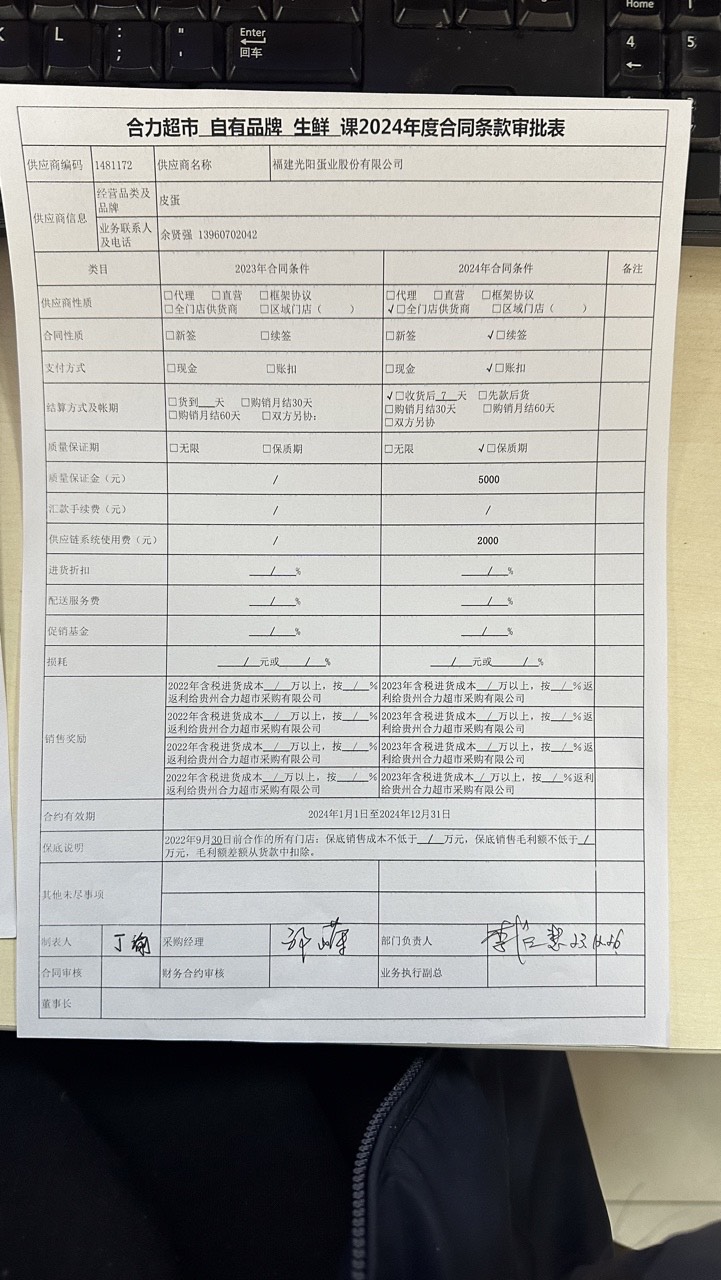 Home
K
L
:
;
"
'
Enter
回车
4
←
5
合力超市 自有品牌 生鲜 课2024年度合同条款审批表
供应商编码 1481172 供应商名称 福建光阳蛋业股份有限公司
供应商信息
经营品类及品牌 皮蛋
业务联系人及电话 余贤强 13960702042
类目 2023年合同条件 2024年合同条件 备注
供应商性质
□代理 □直营 □框架协议
□全门店供货商 □区域门店( )
□代理 □直营 □框架协议
√□全门店供货商 □区域门店( )
合同性质 □新签 □续签 □新签 √□续签
支付方式 □现金 □账扣 □现金 √□账扣
结算方式及帐期
□货到___天 □购销月结30天
□购销月结60天 □双方另协:
√□收货后_7_天 □先款后货
□购销月结30天 □购销月结60天
□双方另协
质量保证期 □无限 □保质期 □无限 √□保质期
质量保证金(元) / 5000
汇款手续费(元) / /
供应链系统使用费(元) / 2000
进货折扣 __/__% __/__%
配送服务费 __/__% __/__%
促销基金 __/__% __/__%
损耗 __/__元或__/__% __/__元或__/__%
销售奖励
2022年含税进货成本_/_万以上，按_/_%
返利给贵州合力超市采购有限公司
2023年含税进货成本_/_万以上，按_/_%返
利给贵州合力超市采购有限公司
2022年含税进货成本_/_万以上，按_/_%
返利给贵州合力超市采购有限公司
2023年含税进货成本_/_万以上，按_/_%返
利给贵州合力超市采购有限公司
2022年含税进货成本_/_万以上，按_/_%
返利给贵州合力超市采购有限公司
2023年含税进货成本_/_万以上，按_/_%返
利给贵州合力超市采购有限公司
2022年含税进货成本_/_万以上，按_/_%
返利给贵州合力超市采购有限公司
2023年含税进货成本_/_万以上，按_/_%返利
给贵州合力超市采购有限公司
合约有效期 2024年1月1日至2024年12月31日
保底说明
2022年9月30日前合作的所有门店：保底销售成本不低于_/_万元，保底销售毛利额不低于_/_
万元，毛利额差额从货款中扣除。
其他未尽事项
制表人 丁瑜 采购经理 部门负责人 李
合同审核 财务合约审核 业务执行副总
董事长